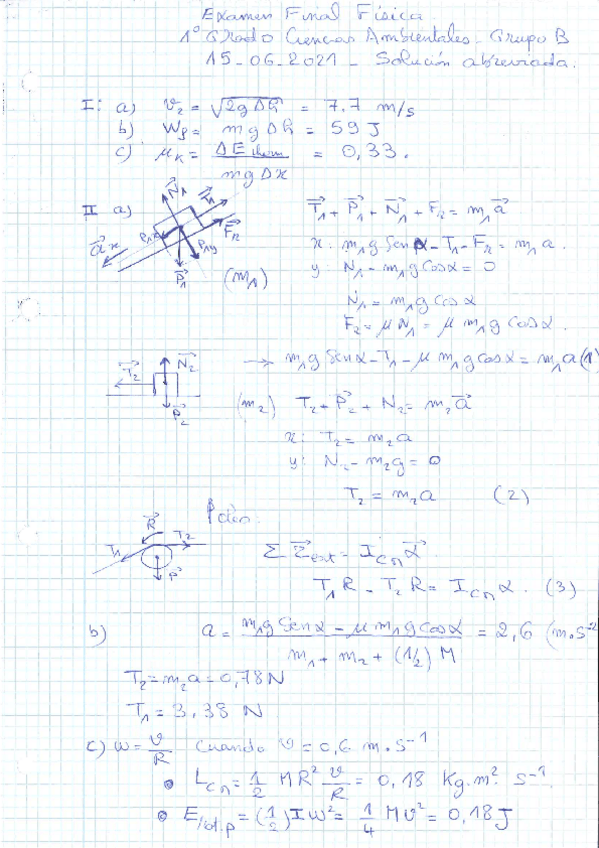 Examen Final Física
1º Grado Ciencias Ambientales - Grupo B
15-06-2021 - Solución abreviada.
I: a) v₂ = √(2gΔh) = 7.7 m/s
b) Wg = mgΔh = 59 J
c) μₖ = ΔE therm / mgΔx = 0,33.
II a) N⃗₁ T⃗₁ F⃗R P₁x P₁y P⃗₁ a⃗ x (m₁)
T⃗₁ + P⃗₁ + N⃗₁ + FR = m₁a⃗
x: m₁g Sen α - T₁ - FR = m₁a.
y: N₁ - m₁g Cos α = 0
N₁ = m₁g cos α
FR = μN₁ = μ m₁g cos α.
→ m₁g Sen α - T₁ - μ m₁g cos α = m₁a (1)
T⃗₂ N⃗₂ P⃗₂
(m₂) T₂ + P⃗₂ + N₂ = m₂a⃗
x: T₂ = m₂a
y: N₂ - m₂g = 0
T₂ = m₂a (2)
Polea:
R⃗ T₁ T₂ P⃗
Σ τ⃗ext = I_CM α⃗
T₁R - T₂R = I_CM α. (3)
b) a = (m₁g Sen α - μ m₁g cos α) / (m₁ + m₂ + (1/2) M) = 2,6 (m.s⁻²
T₂ = m₂a = 0,78 N
T₁ = 3,38 N
c) ω = v/R Cuando v = 0,6 m.s⁻¹
• L_CM = 1/2 MR² v/R = 0,18 Kg.m² s⁻¹
• E = (1/2) Iω² = 1/4 Mv² = 0,18 J